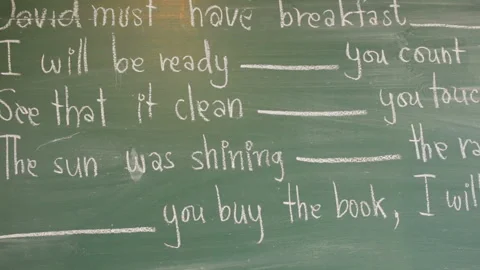 David must have breakfast ______
I will be ready ______ you count
See that it clean ______ you touc
The sun was shining ______ the ra
______ you buy the book, I will